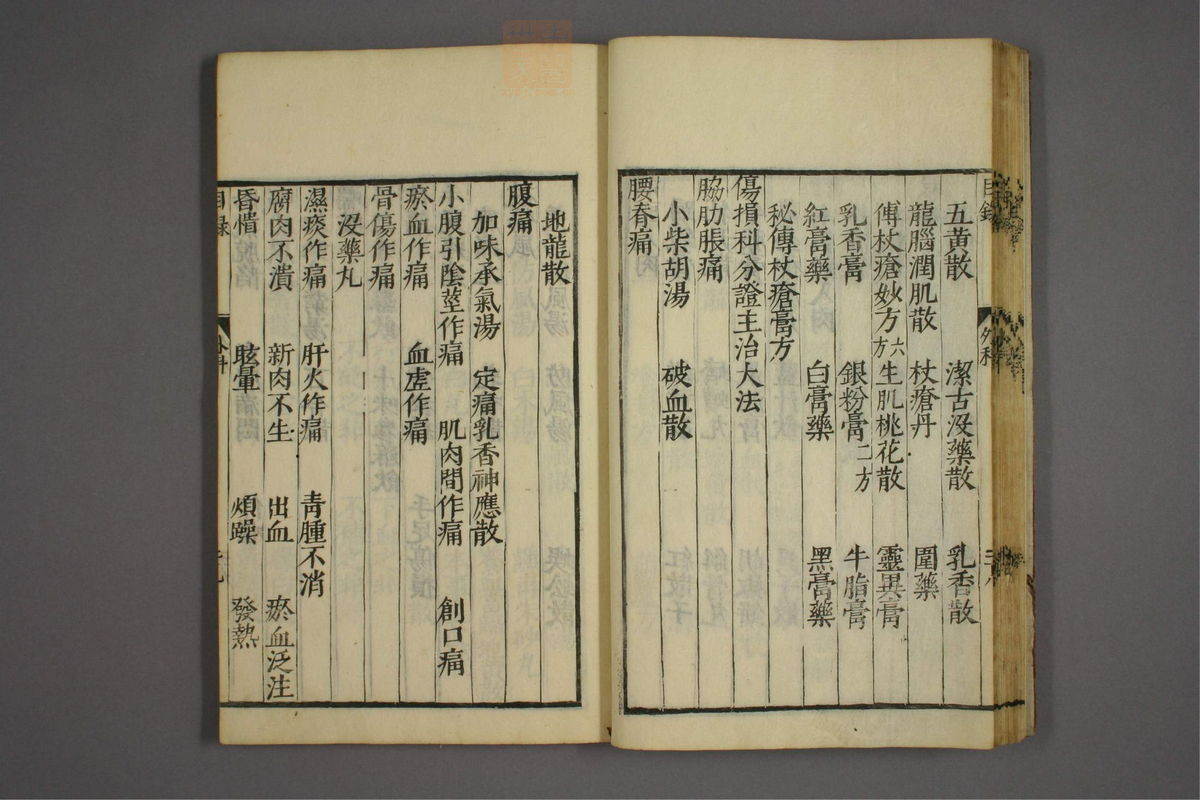 五黄散 潔古没藥散 乳香散
龍腦潤肌散 杖瘡丹 圍藥
傅杖瘡妙方六方 生肌桃花散 靈異膏
乳香膏 銀粉膏二方 牛脂膏
紅膏藥 白膏藥 黑膏藥
秘傳杖瘡膏方
傷損科分證主治大法
脇肋脹痛
小柴胡湯 破血散
腰脊痛
地龍散
腹痛
加味承氣湯 定痛乳香神應散
小腹引陰莖作痛 肌肉間作痛 創口痛
瘀血作痛 血虛作痛
骨傷作痛
没藥丸
濕痰作痛 肝火作痛 青腫不消
腐肉不潰 新肉不生 出血 瘀血泛注
昏憒 眩暈 煩躁 發熱
目録